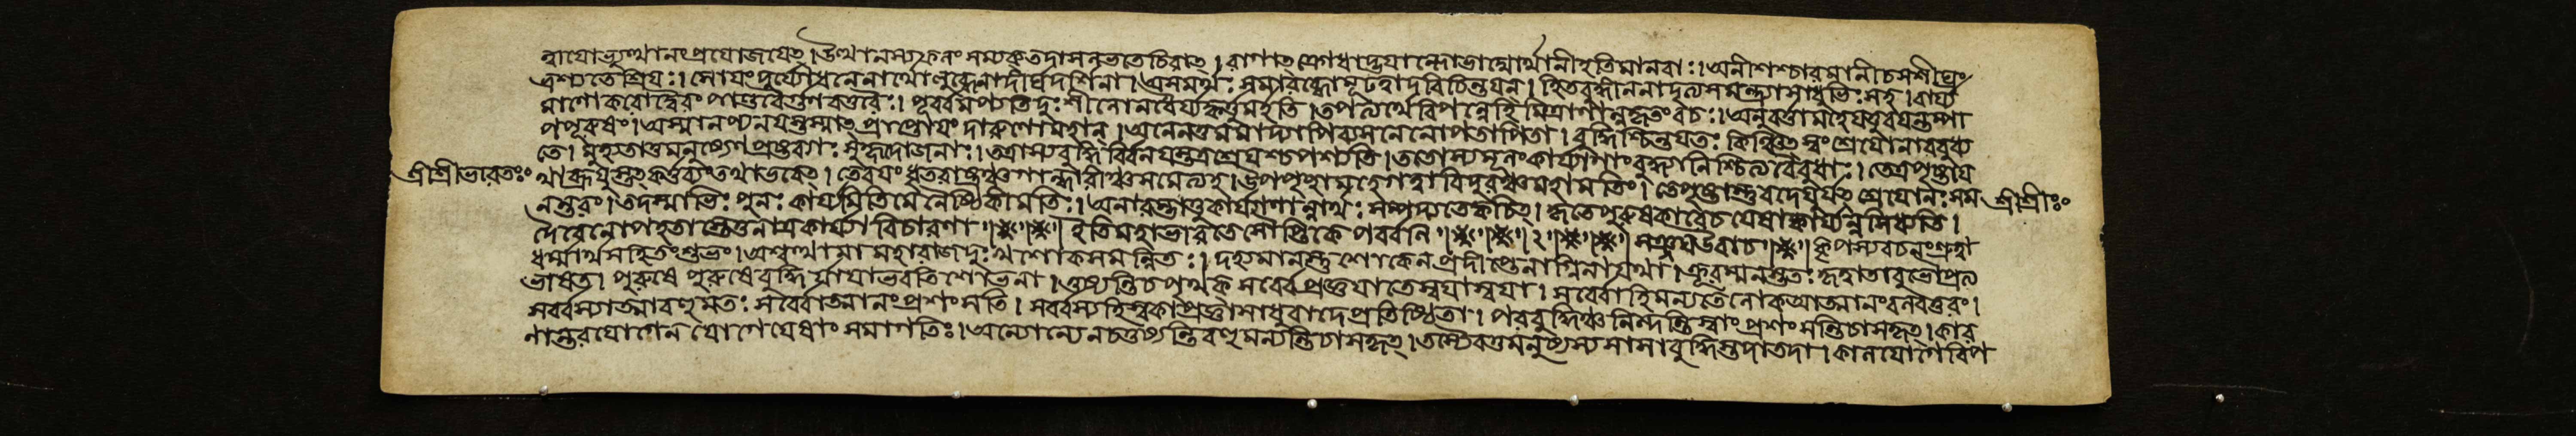 ন্বাযোভ্যুত্থানংপ্রযোজযেত্। উত্থানস্যফলং সম্যক্তদাসলভতেচিরাত্। রাগাত্ক্রোধাদ্ভযাল্লোভাদ্যোর্থানীহতিমানবাঃ। অনীশশ্চাবমানীচসশীঘ্রং
ভ্রশ্যতেশ্রিযঃ। সোযংদুর্য্যোধনেনার্থোলুব্ধেনাদীর্ঘদর্শিনা। অসমর্থঃ সমারব্ধোমূঢত্বাদবিচিন্তযন্। হিতবুদ্ধীননাদৃত্যসমন্ত্র্যাসাধুভিঃসহ। বার্য্য
মাণোকরোদ্বৈরং পাণ্ডবৈর্গুণবত্তরৈঃ। পূর্ব্বমপ্যতিদুঃশীলোনধৈর্য্যঙ্কর্ত্তুমর্হতি। তপত্যর্থেবিপন্নেহি মিত্রাণামকৃতংবচঃ। অনুবর্ত্তামহেযত্তুবযন্তম্পা
পপূরুষং। অস্মানপ্যনযস্তস্মাত্ প্রাপ্তোযং দারুণোমহান্। অনেনতুমমাদ্যাপিব্যসনেনোপতাপিতা। বুদ্ধিশ্চিন্তযতঃ কিঞ্চিত্ স্বংশ্রেযোনাববুধ্য
তে। মুহ্যতাতুমনুষ্যেণ প্রষ্টব্যাঃ সুহৃদোজনাঃ। তত্রাস্যবুদ্ধির্বিনযস্তত্রশ্রেযশ্চপশ্যতি। ততোস্যমূলংকার্য্যাণাংবুদ্ধ্যানিশ্চিত্যবৈবুধাঃ। তেত্রপৃষ্টায
শ্রীশ্রীভারতঃ॰ থাব্রূযুস্তত্কর্ত্তব্যংতথাভবেত্। তেবযংধৃতরাষ্ট্রঞ্চগান্ধারীঞ্চসমেত্যহ। উপপৃচ্ছামহেগত্বাবিদুরঞ্চমহামতিং। তেপৃষ্টাস্তুবদেযুর্যত্ শ্রেযোনঃসম শ্রীশ্রীঃ॰
নন্তরং। তদস্মাভিঃ পুনঃ কার্য্যমিতিমেনৈষ্ঠিকীমতিঃ। অনারম্ভাত্তুকার্যাণান্নার্থঃ সম্পদ্যতেক্বচিত্। কৃতেপুরুষকারেচযেষাঙ্কার্য্যন্নসিধ্যতি।
দৈবেনোপহতাস্তেতুনাত্রকার্য্যাবিচারণা। ইতিমহাভারতেসৌপ্তিকেপর্ব্বনি ।২। সঞ্জযউবাচ। কৃপস্যবচনংশ্রুত্বা
ধর্ম্মার্থসহিতংশুভং। অশ্বত্থামা মহারাজদুঃখশোকসমন্বিতঃ। দহ্যমানস্তুশোকেনপ্রদীপ্তেনাগ্নিনাযথা। ক্রূরম্মনস্ততঃকৃত্বাতাবুভৌপ্রত্য
ভাষত। পুরুষে পুরুষেবুদ্ধির্যাযাভবতিশোভনা। তুষ্যন্তিচপৃথক্ সর্ব্বেপ্রজ্ঞযাতেস্বযাস্বযা। সর্ব্বোহিমন্যতেলোকআত্মানংবলবত্তরং।
সর্ব্বস্যাত্মাবহুমতঃ সর্ব্বোত্মানংপ্রশংসতি। সর্ব্বস্যহিস্বকাপ্রজ্ঞাসাধুবাদেপ্রতিষ্ঠিতা। পরবুদ্ধিঞ্চনিন্দন্তিস্বাংপ্রশংসন্তিচাসকৃত্। কার
ণান্তরযোগেন যোগেযেষাং সমাগতিঃ। অন্যোন্যেনচতুষ্যন্তিবহুমন্যন্তিচাসকৃত্। তস্যৈবতুমনুষ্যস্যসাসাবুদ্ধিস্তদাতদা। কালযোগেবিপ